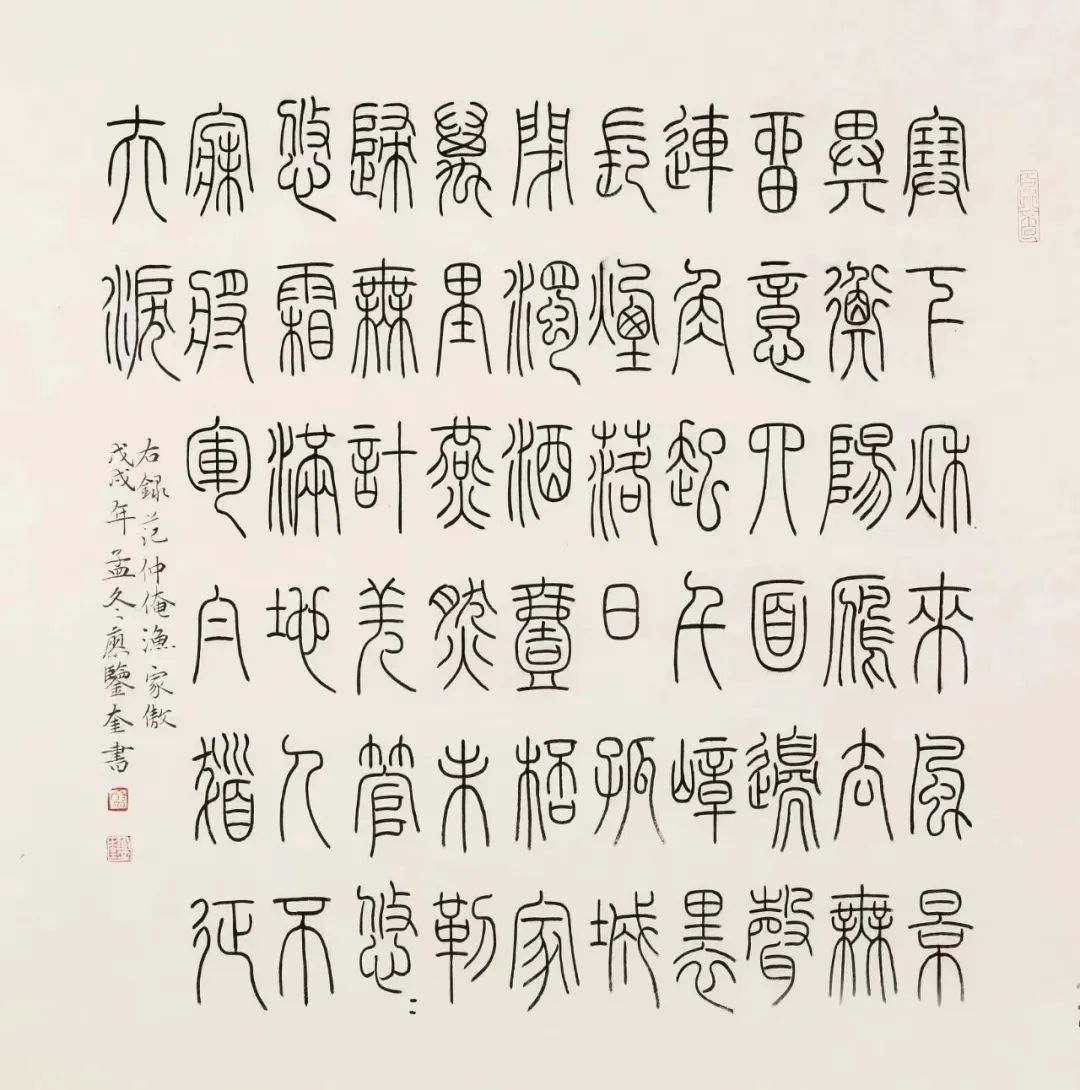 塞下秋來風景
異衡陽鴈去無
留意四面邊聲
連角起千嶂裏
長煙落日孤城
閉濁酒壹桮家
萬里燕然未勒
歸無計羌管悠
悠霜滿地人不
寐將軍白髮征
夫淚
右錄范仲俺漁家傲
戊戌年孟冬廖鑒奎書